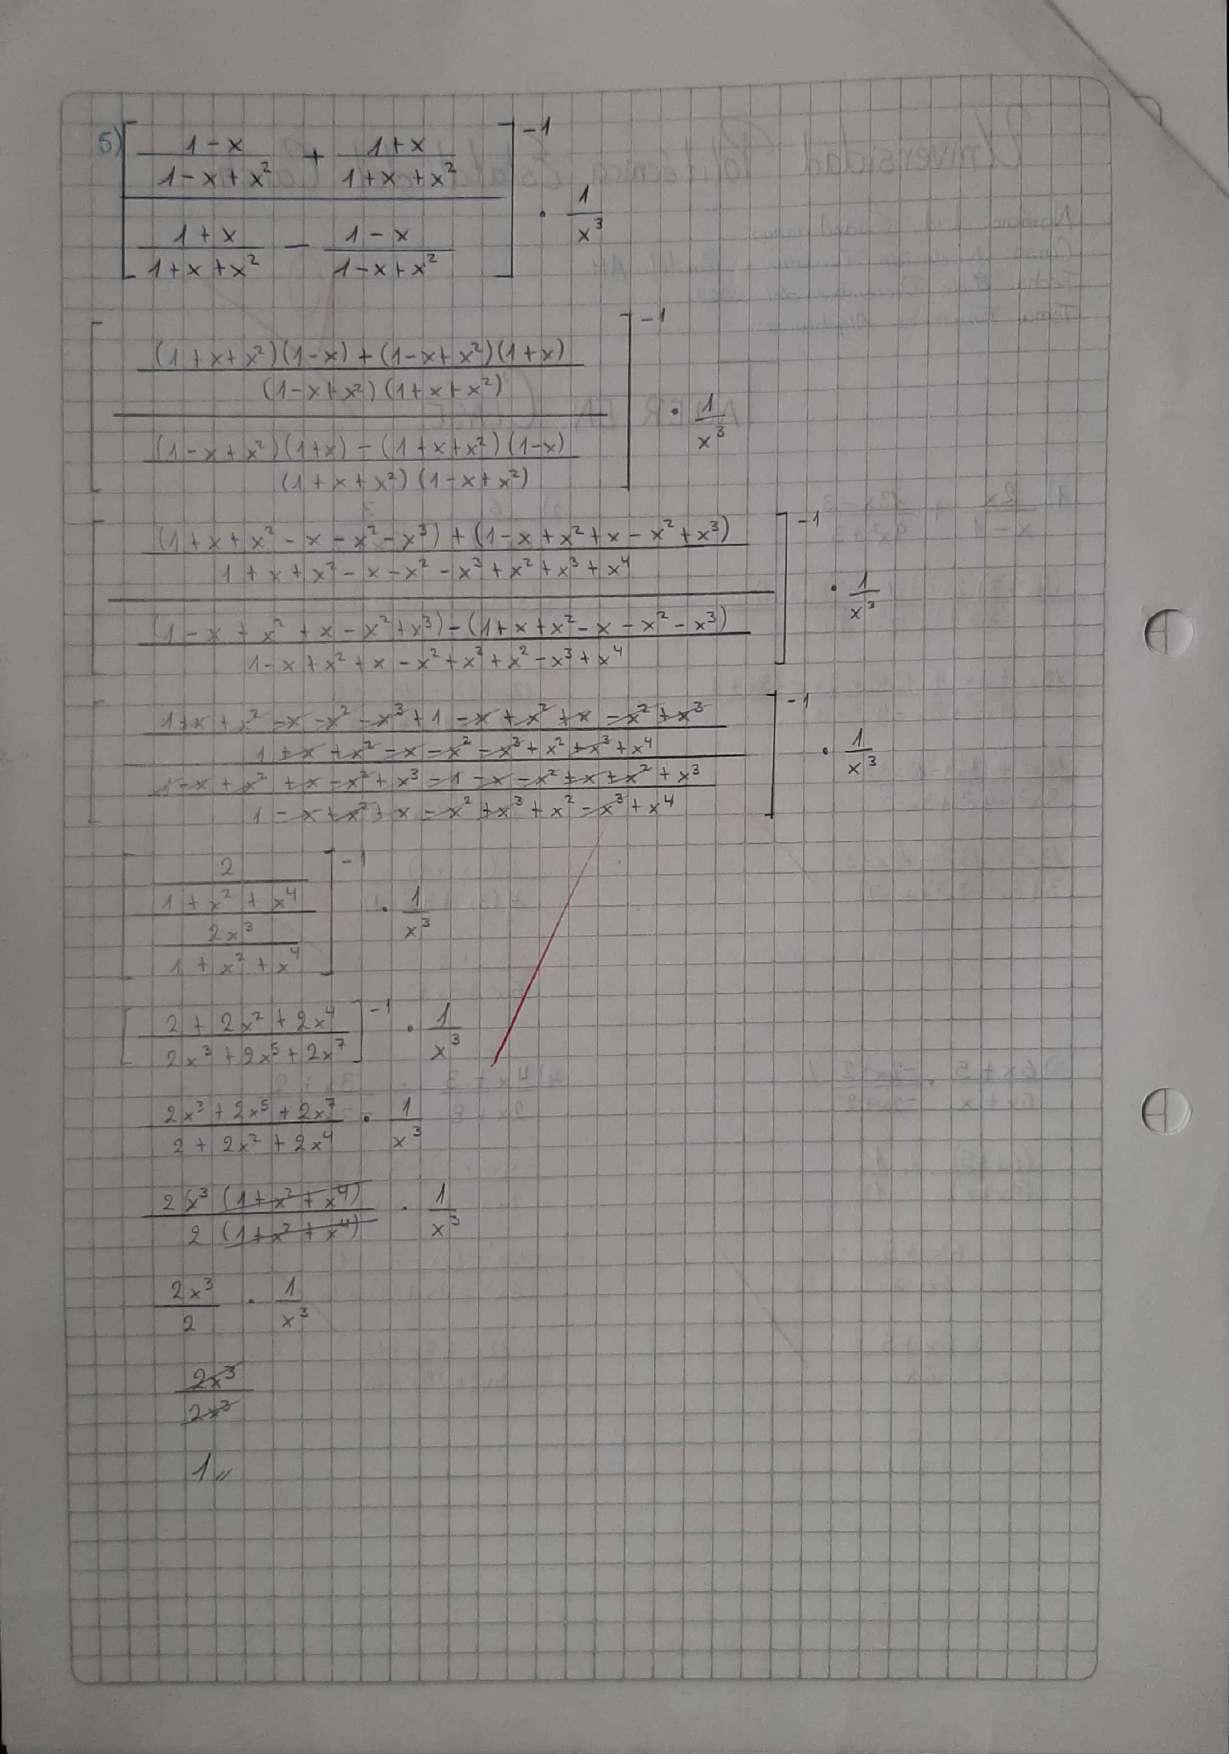 5) [ (1-x)/(1-x+x²) + (1+x)/(1+x+x²)
(1+x)/(1+x+x²) - (1-x)/(1-x+x²) ]⁻¹ · 1/x³
[ (1+x+x²)(1-x)+(1-x+x²)(1+x)
(1-x+x²)(1+x+x²)
(1-x+x²)(1+x)-(1+x+x²)(1-x)
(1+x+x²)(1-x+x²) ]⁻¹ · 1/x³
[ (1+x+x²-x-x²-x³)+(1-x+x²+x-x²+x³)
1+x+x²-x-x²-x³+x²+x³+x⁴
(1-x+x²+x-x²+x³)-(1+x+x²-x-x²-x³)
1-x+x²+x-x²+x³+x²-x³+x⁴ ]⁻¹ · 1/x³
[ 1+x+x²-x-x²-x³+1-x+x²+x-x²+x³
1+x+x²-x-x²-x³+x²+x³+x⁴
1-x+x²+x-x²+x³-1-x-x²+x+x²+x³
1-x+x²+x-x²+x³+x²-x³+x⁴ ]⁻¹ · 1/x³
[ 2
1+x²+x⁴
2x³
1+x²+x⁴ ]⁻¹ · 1/x³
[ (2+2x²+2x⁴)/(2x³+2x⁵+2x⁷) ]⁻¹ · 1/x³
(2x³+2x⁵+2x⁷)/(2+2x²+2x⁴) · 1/x³
2x³(1+x²+x⁴)/2(1+x²+x⁴) · 1/x³
2x³/2 · 1/x³
2x³/2x³
1//